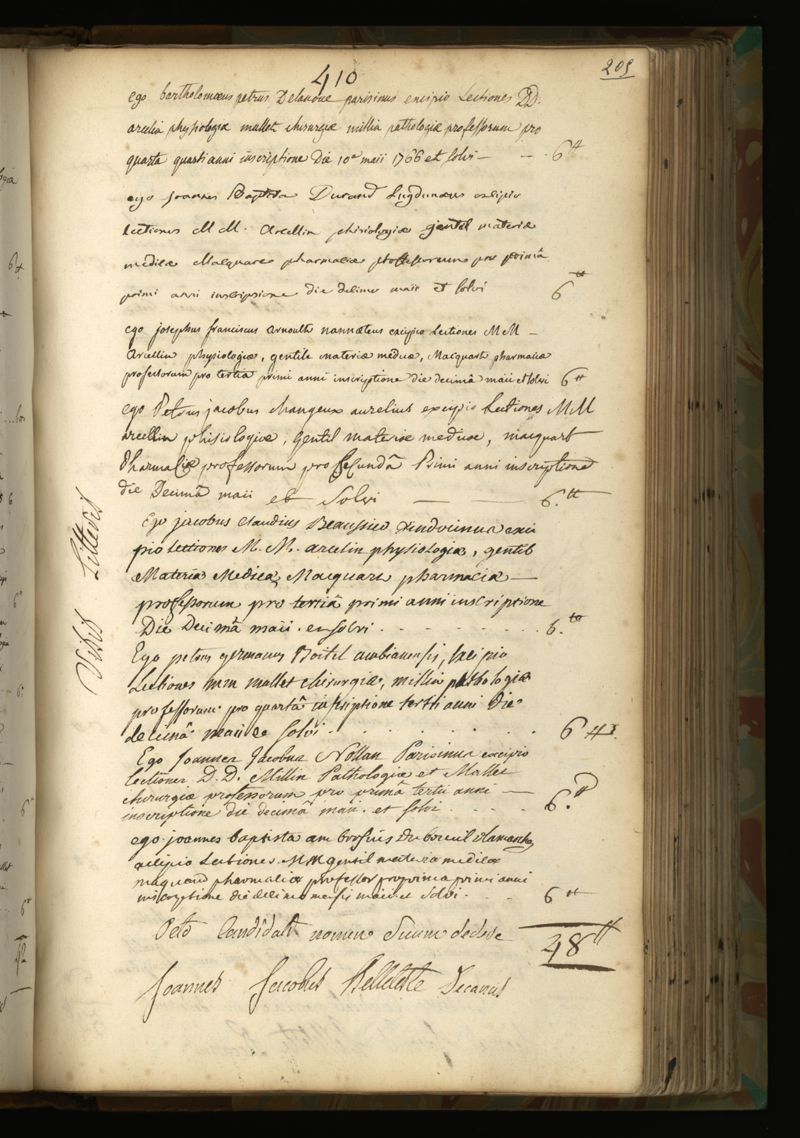 410
205
ego bartholomæus petrus Delanoue parisinus excipio Lectiones DD.
arcelin physiologiæ mallet chirurgiæ millin pathologiæ professorum pro
quarta quarti anni inscriptione Die 10a maii 1766 et solvi — 6tt
ego joannes Baptista Durand Lugdunæus excipio
Lectiones M M. Arcellin phisiologiæ gentil materiæ
medicæ Macquare pharmaciæ professorum pro primâ
primi anni inscriptione die decima maii et solvi 6tt
ego josephus franciscus arnoult nannæteus excipio Lectiones M M —
Arcellin physiologiæ, gentile materiæ medicæ, Macquart pharmaciæ
professorum pro tertia primi anni inscriptione die decimâ maii et solvi 6tt
ego Petrus jacobus changeux aurelius excipio Lectiones M M
arcellin phisiologiæ, gentil materiæ medicæ, macquart
Pharmaciæ professorum pro secundâ Primi anni inscriptione
die Decimâ maii et Solvi — — 6.tt
Ego jacobus claudius Beaussieu vindocinus exci
pio Lectiones M. M. arcelin physiologiæ, gentil
Materia Medica, Macquart pharmaciæ —
professorum pro tertiâ primi anni inscriptione
Die Decimâ maii. et solvi. 6.tt
Ego petrus germanus Boitel ambianensis, excipio
Lectiones mm mallet chirurgiæ, millin pathologiæ
professorum pro quartâ inscriptione tertii anni Die
decimâ maii et solvi 6tt
Ego Joannes Jacobus Nollan Parisinus excipio
lectiones D. D. Millin Pathologiæ et Mallet
chirurgiæ professorum pro prima tertii anni —
inscriptione die decimâ maii. et solvi 6.tt
ego joannes baptista ambrosius Dubreuil
accipio Lectiones MM gentil materia medicæ
maquard pharmaciæ professor pro prima primi anni
inscryptione die decimo mensis maii et solvi. 6tt
Petr Candidat nomen Suum dedere
48tt
Joannes Jacobus Belleteste Decanus
Visis Litteris